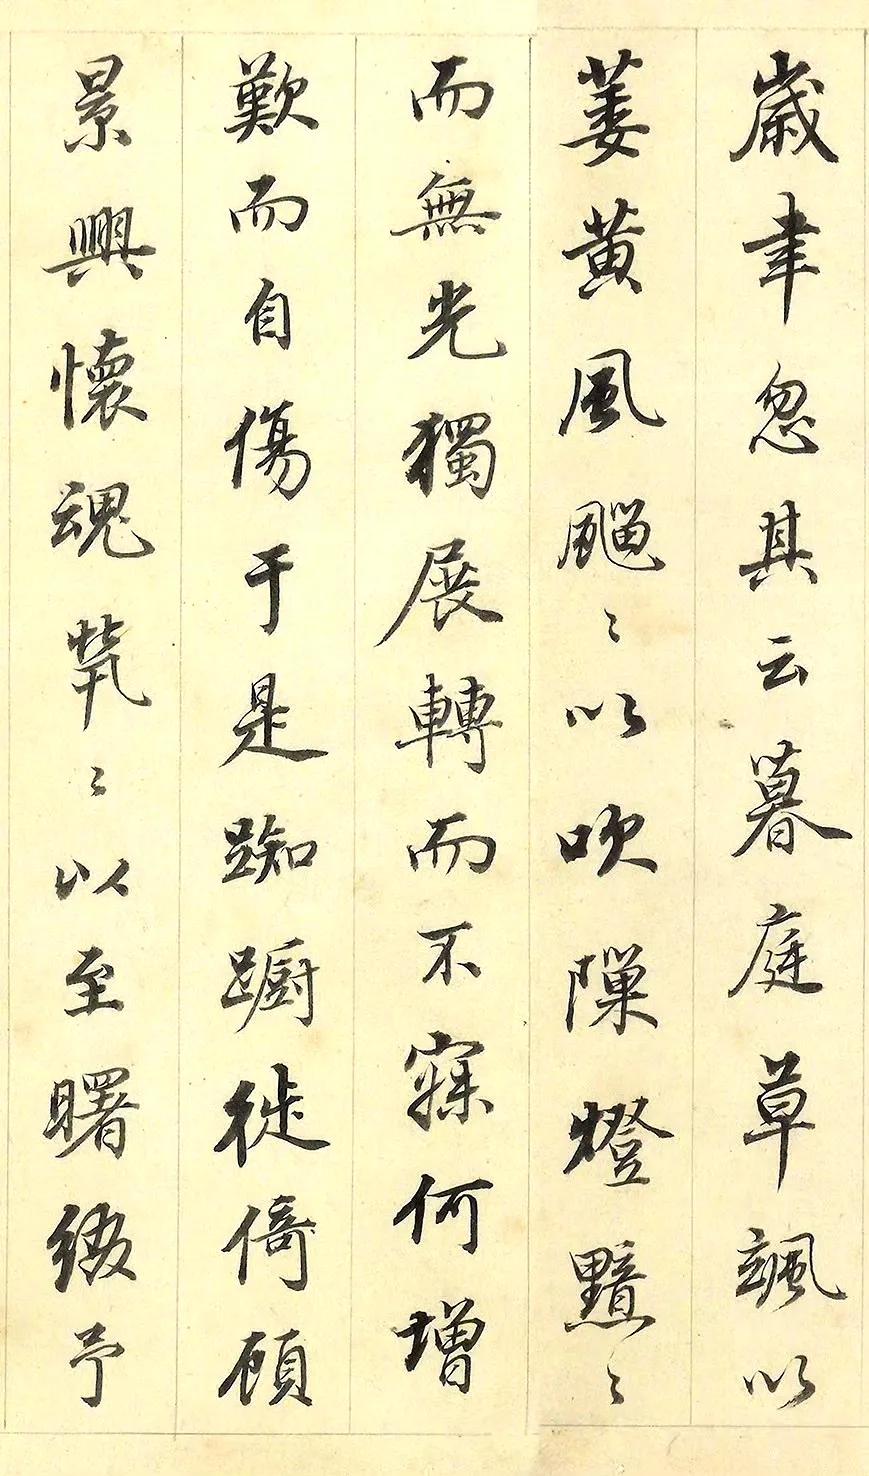 歲聿忽其云暮庭草颯以
萎黄風颸〻以吹隟燈黯〻
而無光獨展轉而不寐何增
歎而自傷于是踟蹰徙倚顧
景興懷魂煢〻以至曙綴予